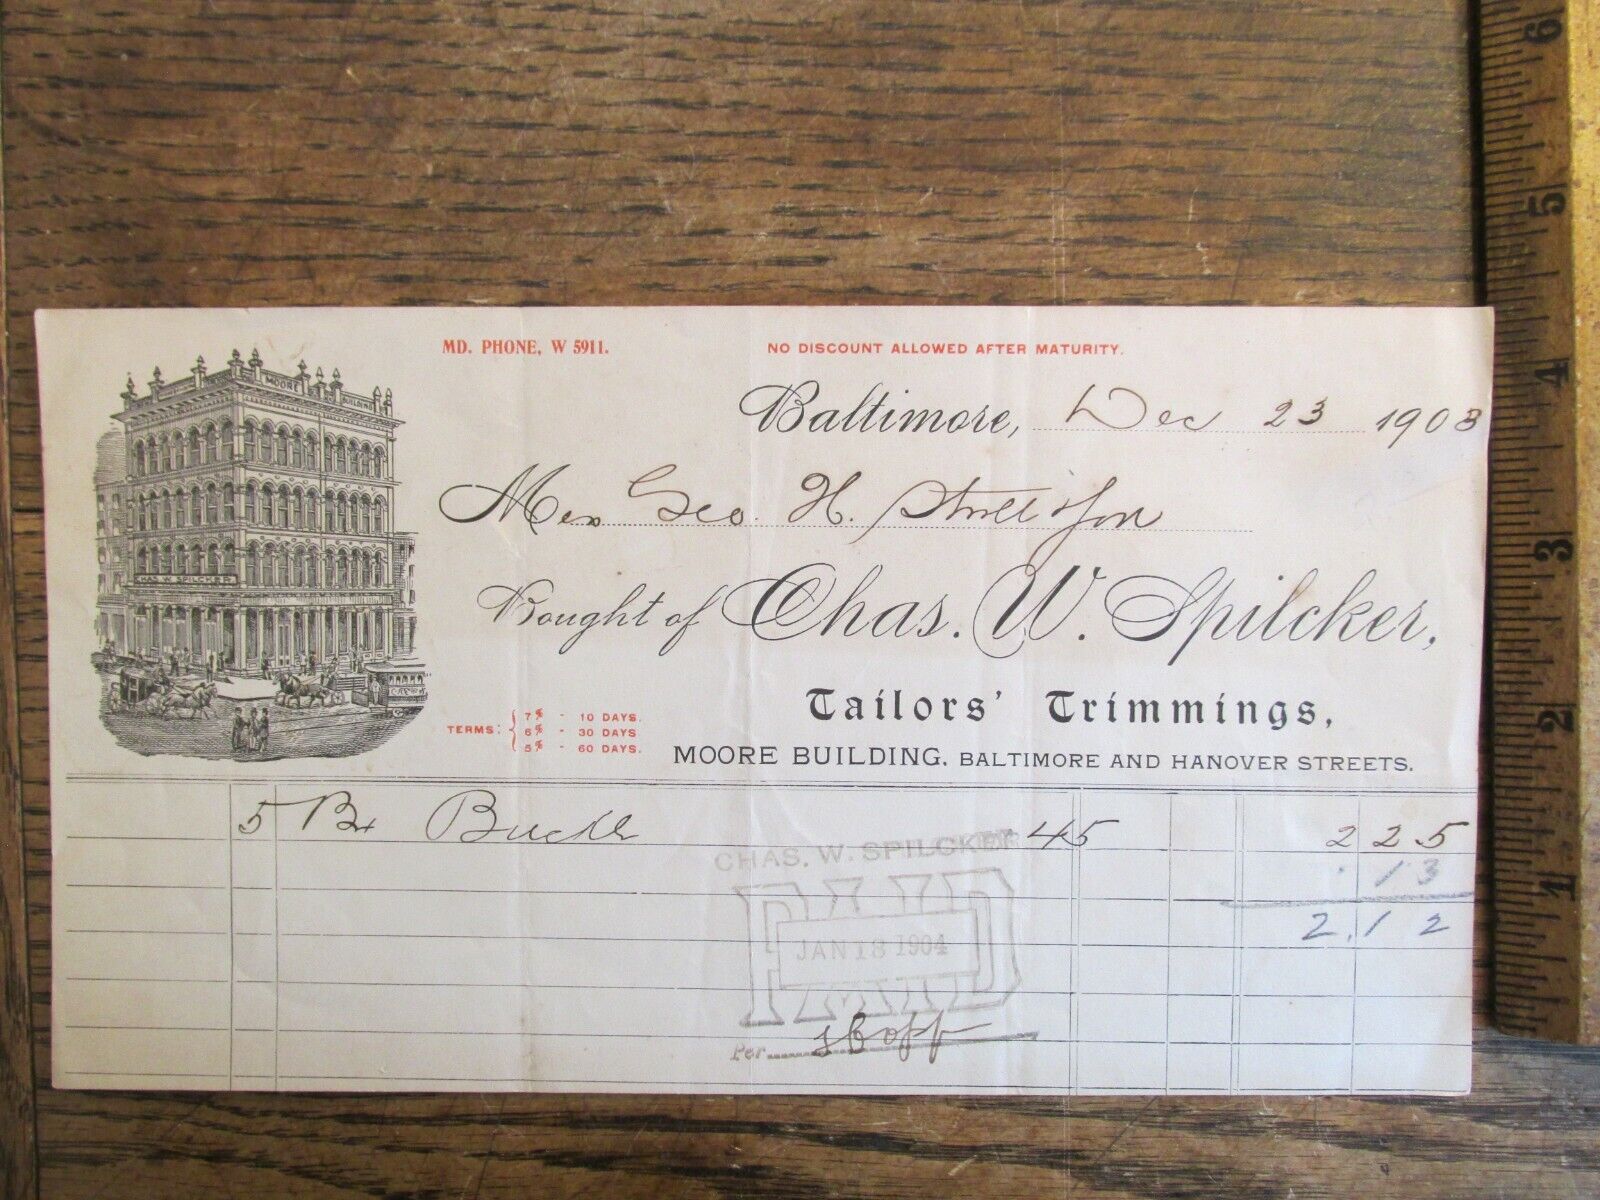 MD. PHONE, W 5911.
NO DISCOUNT ALLOWED AFTER MATURITY.
MOORE BUILDING
CHAS. W. SPILCKER
Baltimore, Dec 23 1903
Geo. H. & Son
Bought of Chas. W. Spilcker,
Tailors' Trimmings,
MOORE BUILDING, BALTIMORE AND HANOVER STREETS.
TERMS: 7% - 10 DAYS.
6% - 30 DAYS.
5% - 60 DAYS.
5 Bx Buckle 45 2 25
13
2.12
CHAS. W. SPILCKER
PAID
JAN 18 1904
Per
6
5
4
3
2
1